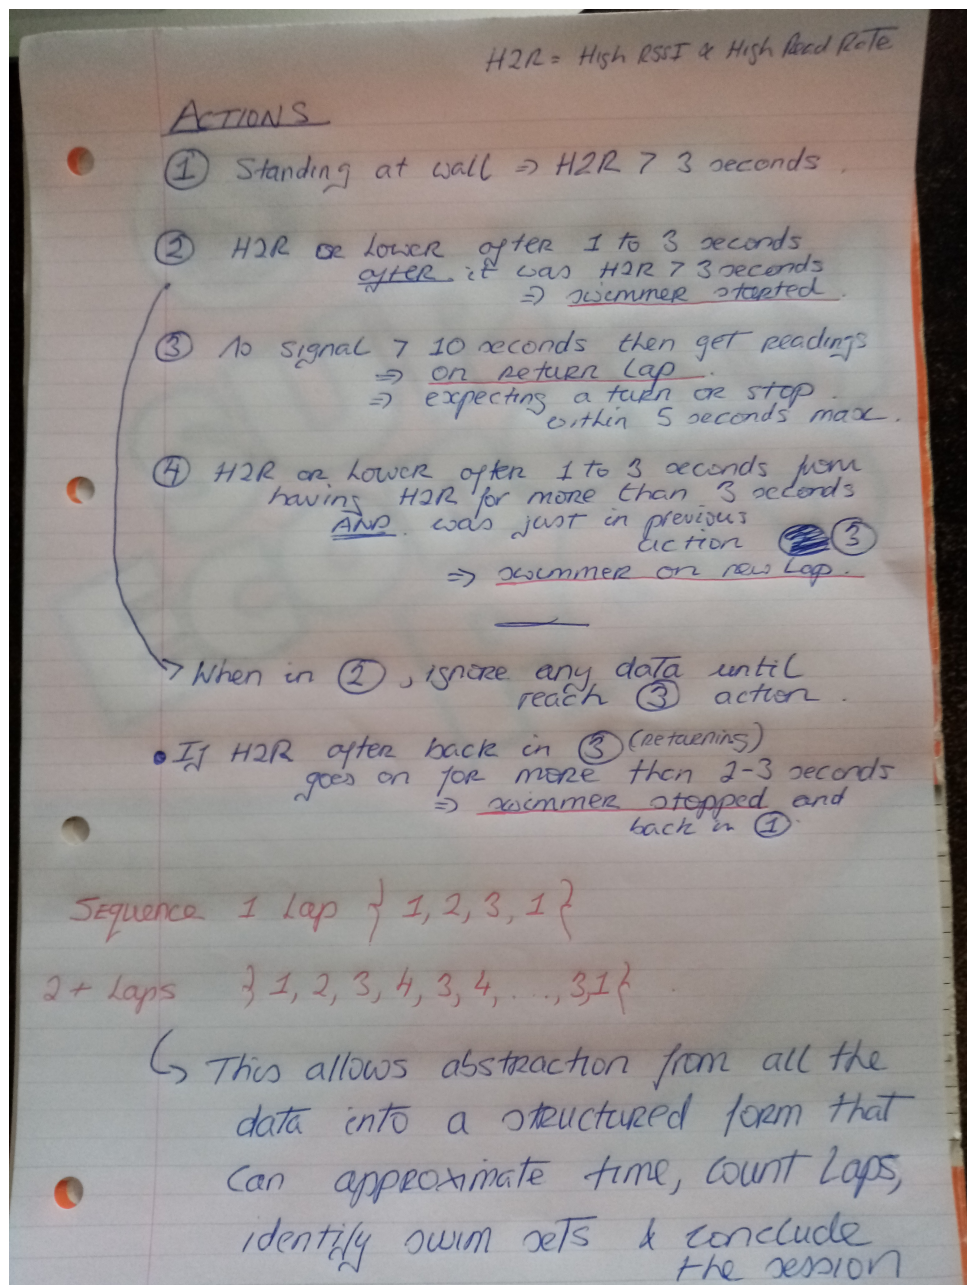 H2R = High RSSI & High Read Rate
ACTIONS
① Standing at wall => H2R > 3 seconds.
② H2R or Lower after 1 to 3 seconds
after it was H2R > 3 seconds
=> swimmer started.
③ No signal > 10 seconds then get readings
=> on return Lap.
=> expecting a turn or stop.
within 5 seconds max.
④ H2R or Lower after 1 to 3 seconds from
having H2R for more than 3 seconds
AND was just in previous
action ③
=> swimmer on new Lap.
When in ②, ignore any data until
reach ③ action.
• If H2R after back in ③ (returning)
goes on for more then 2-3 seconds
=> swimmer stopped and
back in ①.
Sequence 1 Lap } 1, 2, 3, 1 {
2+ Laps } 1, 2, 3, 4, 3, 4, ..., 3,1 {
This allows abstraction from all the
data into a structured form that
can approximate time, count Laps,
identify swim sets & conclude
the session